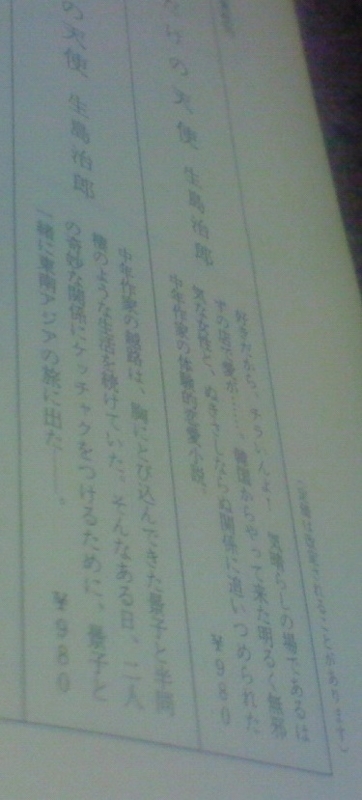 （定価は改定されることがあります）
たけの天使 生島治郎
好きだから、チラいんよ！ 気晴らしの場であるは
ずの店で愛が……。韓国からやって来た明るく無邪
気な女性と、ぬきさしならぬ関係に追いつめられた
中年作家の体験的恋愛小説。
￥980
の天使 生島治郎
中年作家の越路は、胸にとび込んできた景子と半同
棲のような生活を続けていた。そんなある日、二人
の奇妙な関係にケッチャクをつけるために、景子と
一緒に東南アジアの旅に出た――。
￥980